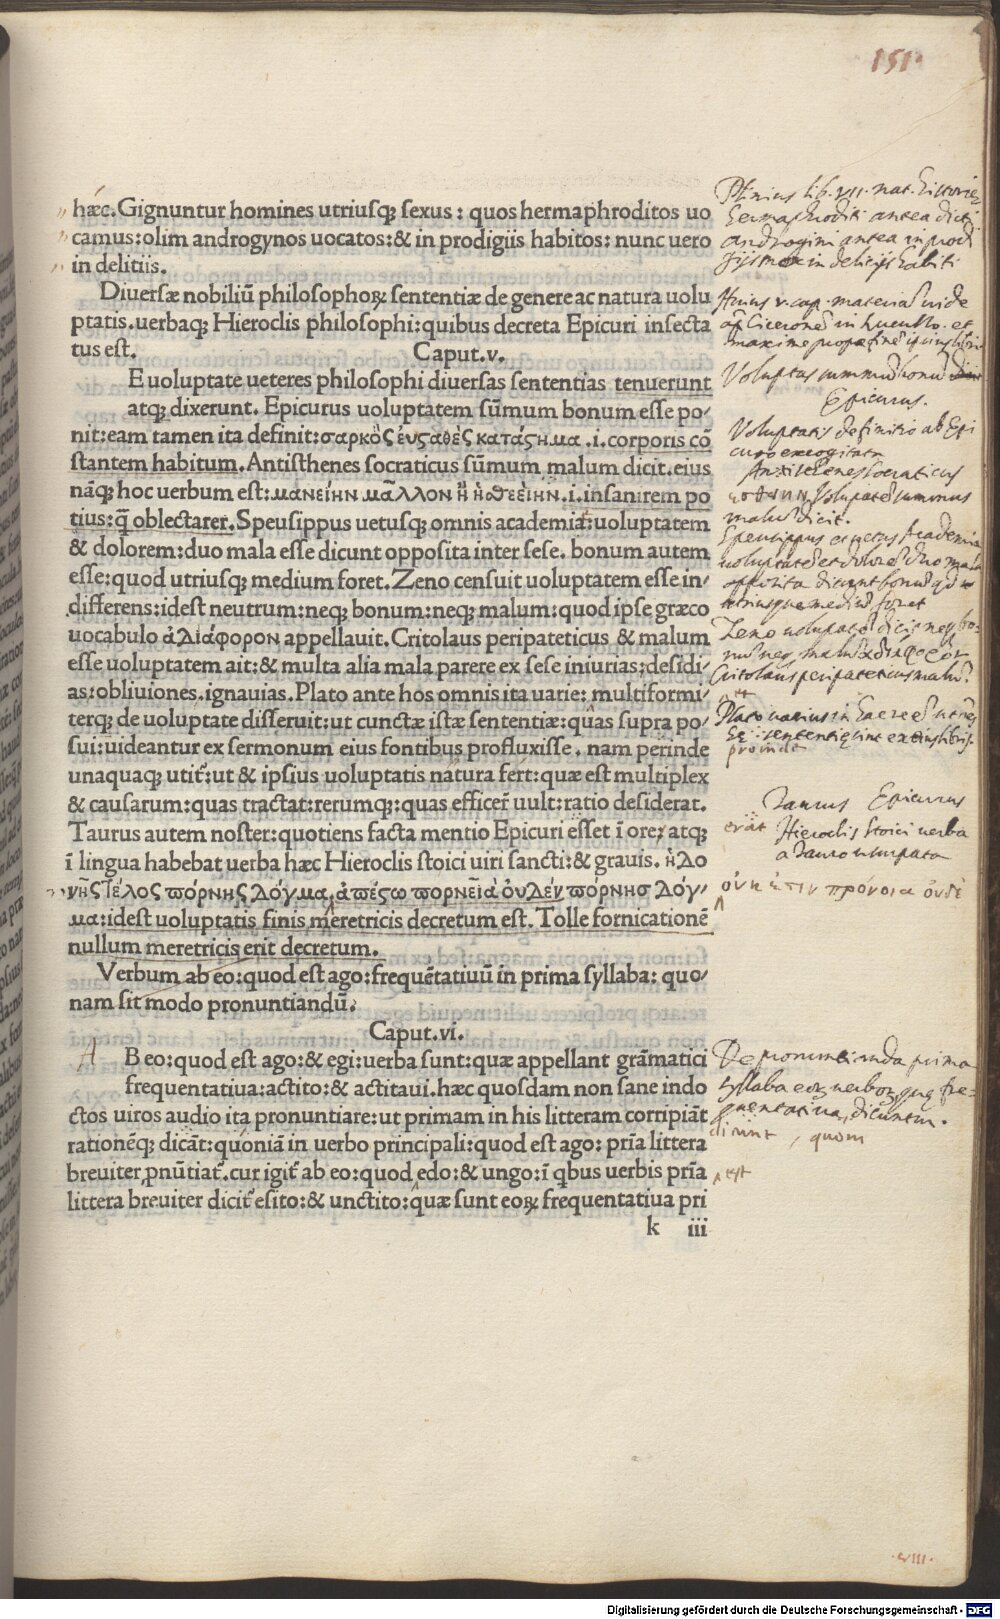 151
hæc. Gignuntur homines utriusq; sexus : quos hermaphroditos uo
camus: olim androgynos uocatos: & in prodigiis habitos: nunc uero
in delitiis.
Diuersæ nobiliũ philosophoꝝ sententiæ de genere ac natura uolu
ptatis. uerbaq; Hieroclis philosophi: quibus decreta Epicuri insecta
tus est. Caput. v.
E uoluptate ueteres philosophi diuersas sententias tenuerunt
atq; dixerunt. Epicurus uoluptatem sũmum bonum esse po-
nit: eam tamen ita definit: σαρκὸς ἐυσαθὲς κατάσημα .i. corporis cõ
stantem habitum. Antisthenes socraticus sũmum malum dicit. eius
nãq; hoc uerbum est: μανείην μᾶλλον ἢ ἡσθεείην. i. insanirem po
tius: q̃ oblectarer. Speusippus uetusq; omnis academia: uoluptatem
& dolorem: duo mala esse dicunt opposita inter sese. bonum autem
esse: quod utriusq; medium foret. Zeno censuit uoluptatem esse in-
differens: idest neutrum: neq; bonum: neq; malum: quod ipse græco
uocabulo ἀδιάφορον appellauit. Critolaus peripateticus & malum
esse uoluptatem ait: & multa alia mala parere ex sese iniurias: desidi-
as: obliuiones. ignauias. Plato ante hos omnis ita uarie: multiformi-
terq; de uoluptate disseruit: ut cunctæ istæ sententiæ: quas supra po-
sui: uideantur ex sermonum eius fontibus profluxisse. nam perinde
unaquaq; utit̃: ut & ipsius uoluptatis natura fert: quæ est multiplex
& causarum: quas tractat: rerumq;: quas efficer̃ uult: ratio desiderat.
Taurus autem noster: quotiens facta mentio Epicuri esset ĩ ore: atq;
ĩ lingua habebat uerba hæc Hieroclis stoici uiri sancti: & grauis. ἡδο
νῆς τέλος πόρνης δόγμα, ἀπέσω πορνεῖα ὀυδὲν πόρνησ δόγ-
μα: idest uoluptatis finis meretricis decretum est. Tolle fornicationẽ
nullum meretricis erit decretum.
Verbum ab eo: quod est ago: frequẽtatiuũ in prima syllaba: quo-
nam sit modo pronuntiandũ.
Caput. vi.
A B eo: quod est ago: & egi: uerba sunt: quæ appellant grãmatici
frequentatiua: actito: & actitaui. hæc quosdam non sane indo
ctos uiros audio ita pronuntiare: ut primam in his litteram corripiãt
rationẽq; dicãt: quoniã in uerbo principali: quod est ago: pria littera
breuiter ꝓnũtiat̃. cur igit̃ ab eo: quod edo: & ungo: ĩ qbus uerbis pria
littera breuiter dicit̃ esito: & unctito: quæ sunt eoꝝ frequentatiua pri
k iii
Plinius lib. VII. nat. historie
hermaphroditi antea dicti
androgini antea in prodi
giis modo in deliciis habiti
Voluptas summum bonum
Epicurus.
Voluptatis definitio ab Epi
curo excogitata
Antisthenes socraticus
malum dicit.
Speusippus et uetus Academia
Critolaus peripateticus malum
proinde
Taurus Epicurus
erat Hieroclis stoici uerba
a Tauro usurpata
οὐκ ἔστιν πρόνοια οὐδὲ
De pronuncianda prima
syllaba eoꝝ uerboꝝ que fre-
quentatiua dicuntur.
dicunt, quom
est
VIII.
Digitalisierung gefördert durch die Deutsche Forschungsgemeinschaft - DFG